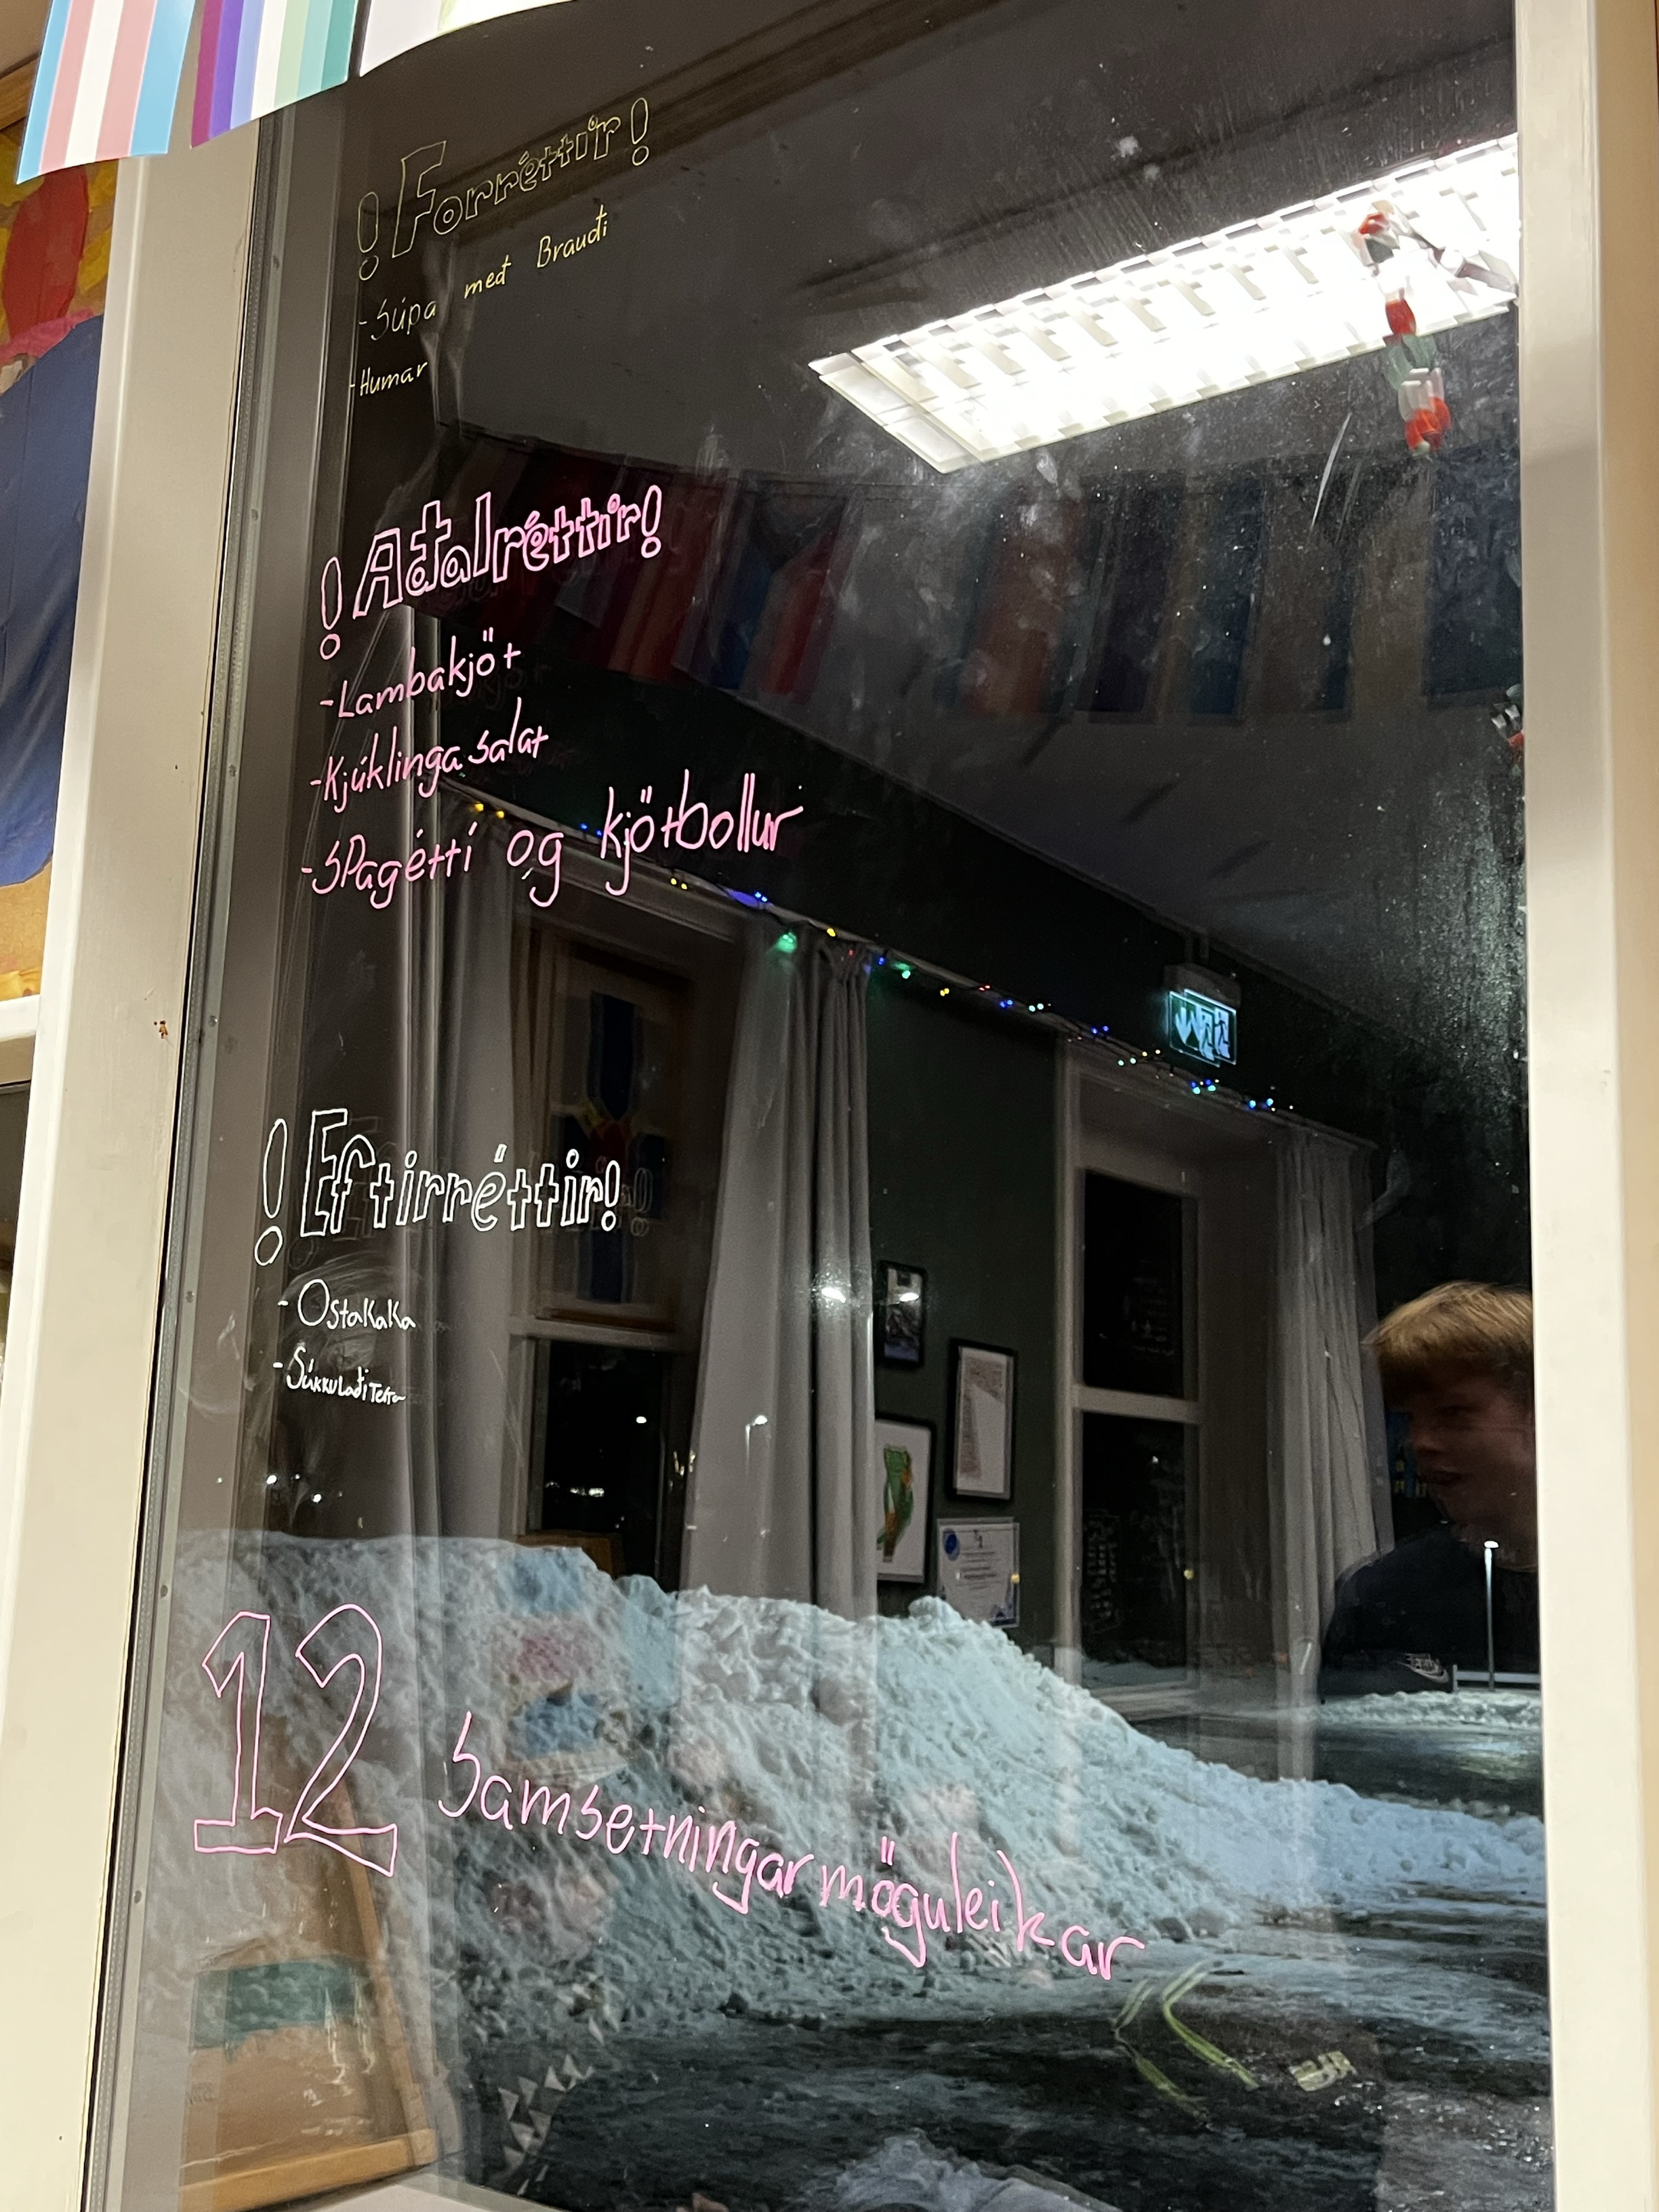 !Forréttir!
-Súpa með Brauði
-Humar
!Aðalréttir!
-Lambakjöt
-Kjúklinga salat
-SPagéttí og kjötbollur
!Eftirréttir!
-Ostakaka
-Súkkulaði Terta
12 Samsetningar möguleikar